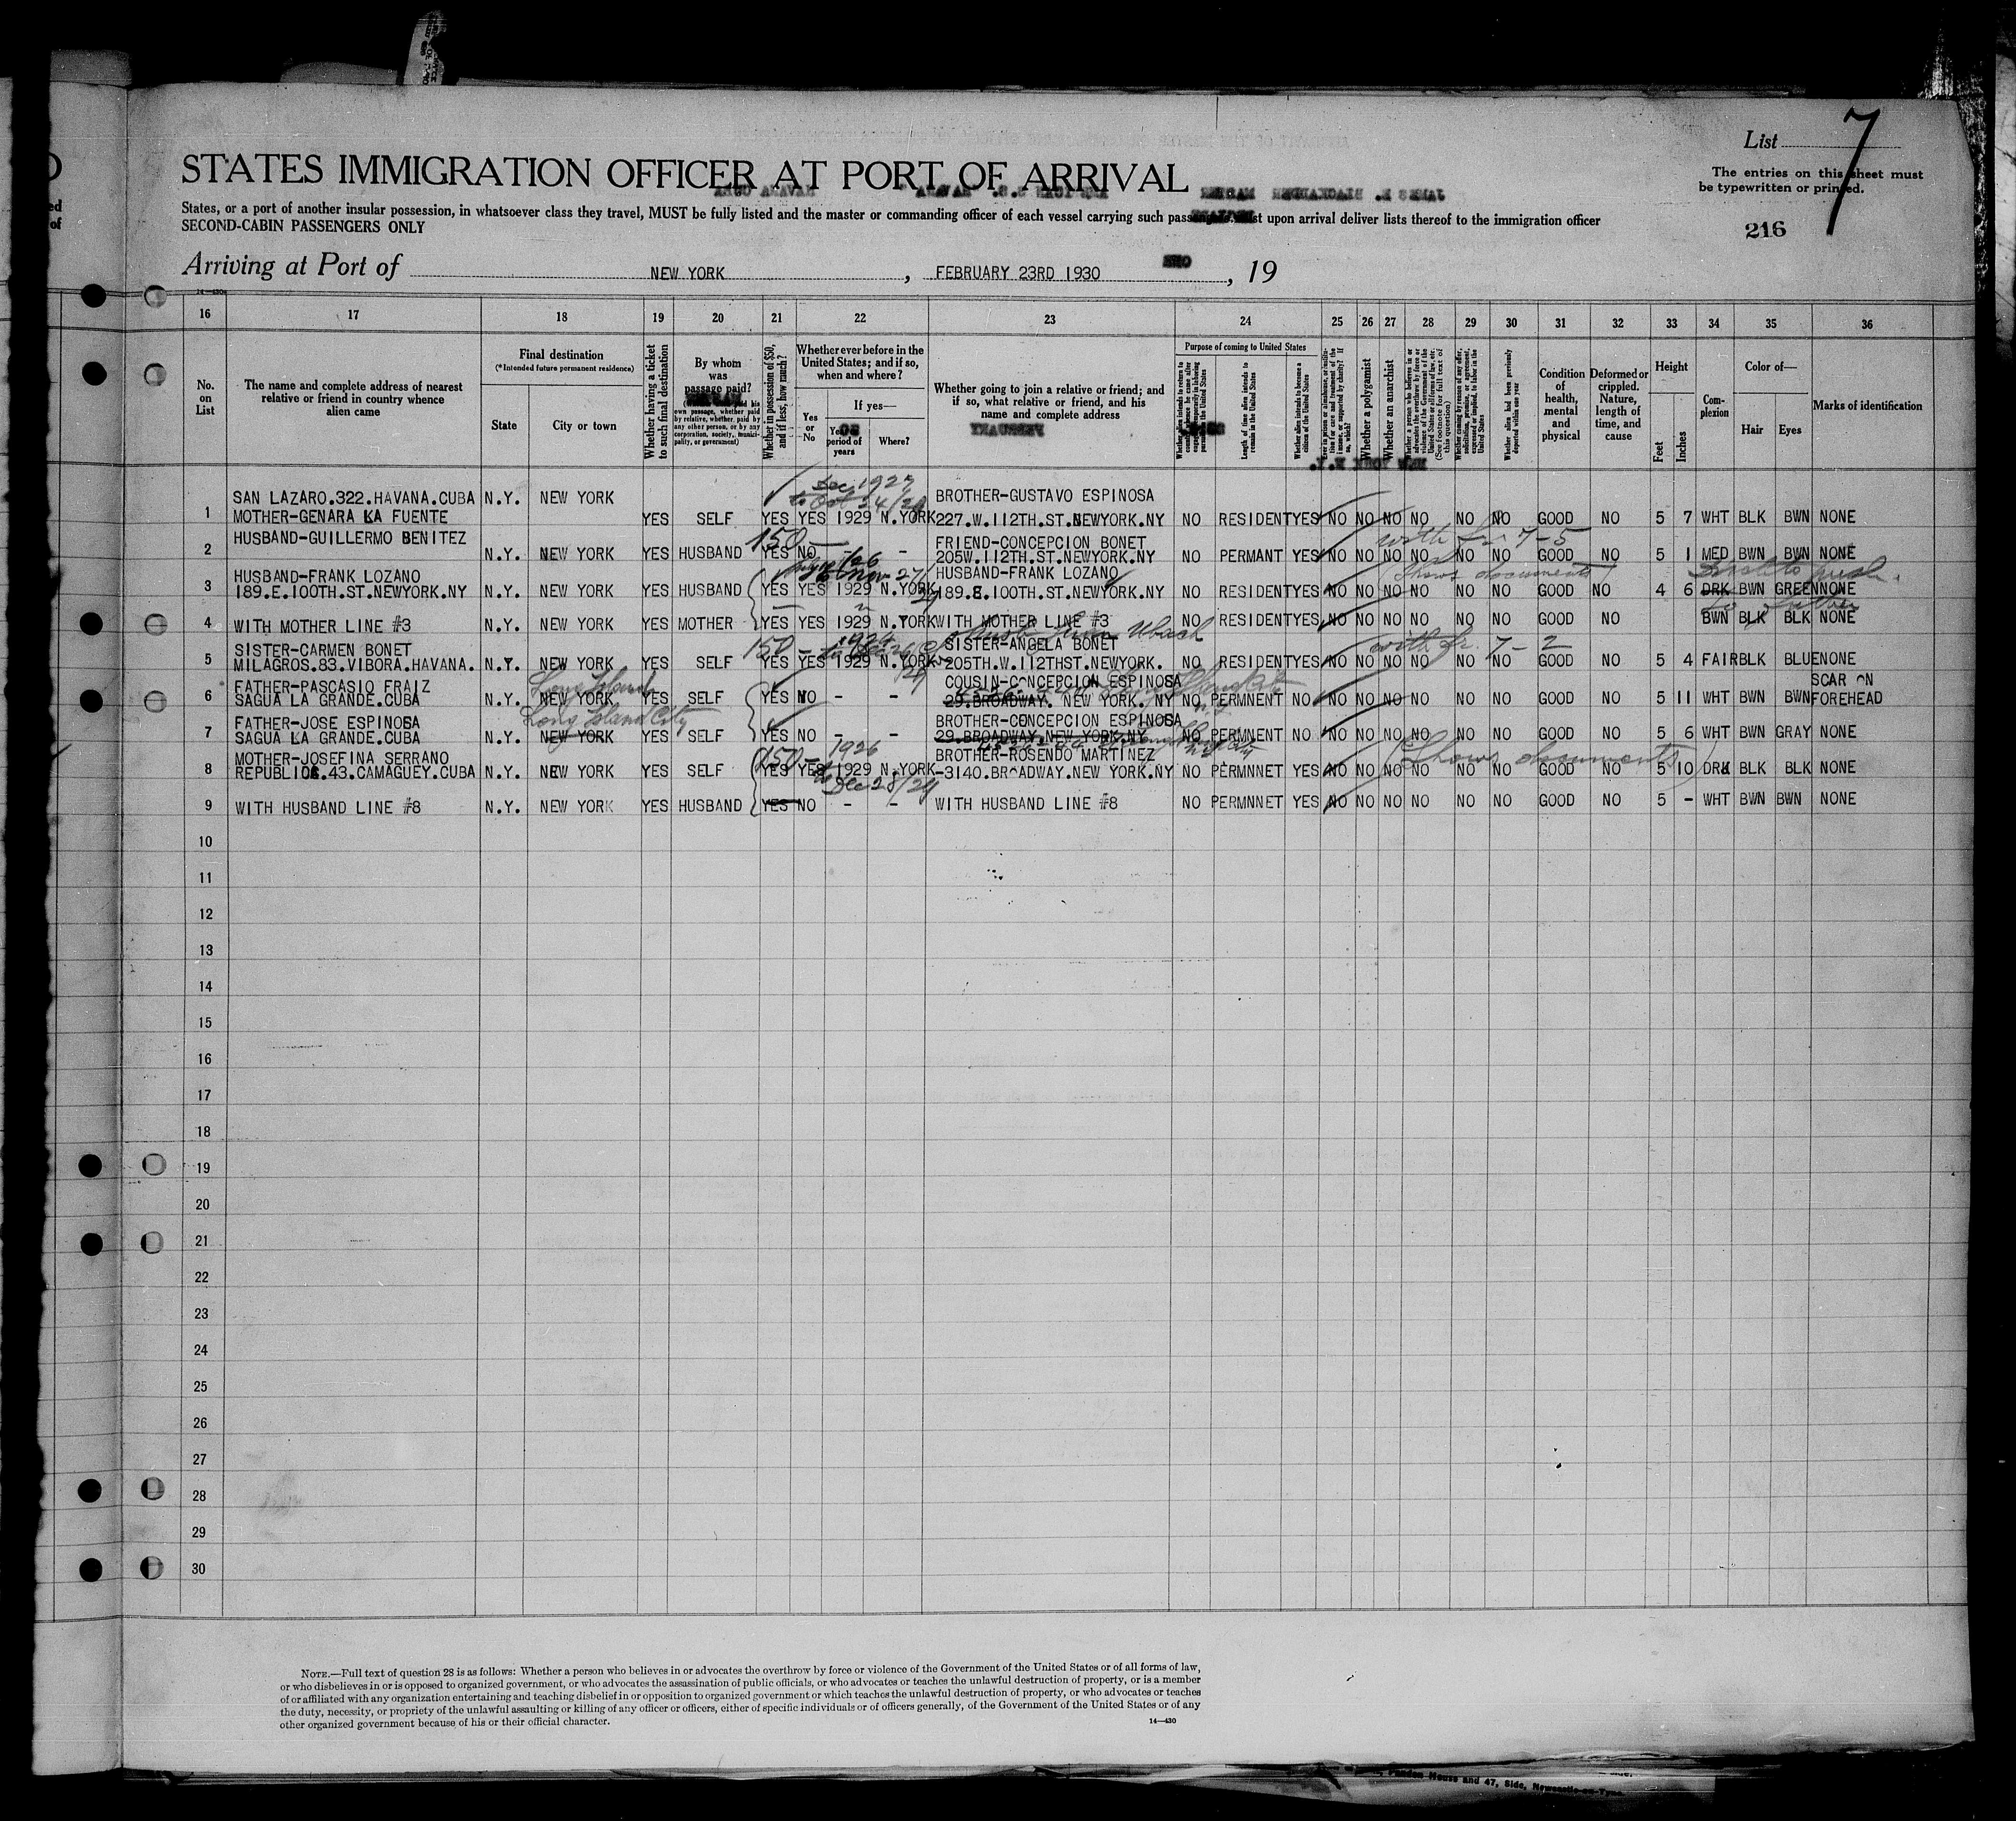 List 7
The entries on this sheet must
be typewritten or printed.
216
STATES IMMIGRATION OFFICER AT PORT OF ARRIVAL
States, or a port of another insular possession, in whatsoever class they travel, MUST be fully listed and the master or commanding officer of each vessel carrying such upon arrival deliver lists thereof to the immigration officer
SECOND-CABIN PASSENGERS ONLY
Arriving at Port of NEW YORK, FEBRUARY 23RD 1930, 19
16 17 18 19 20 21 22 23 24 25 26 27 28 29 30 31 32 33 34 35 36
No. on List
The name and complete address of nearest relative or friend in country whence alien came
Final destination
(*Intended future permanent residence)
State
City or town
Whether having a ticket to such final destination
By whom was passage paid?
Whether in possession of $50, and if less, how much?
Whether ever before in the United States; and if so, when and where?
Yes or No
If yes—
period of years
Where?
Whether going to join a relative or friend; and if so, what relative or friend, and his name and complete address
Purpose of coming to United States
Length of time alien intends to remain in the United States
Whether alien intends to become a citizen of the United States
Whether a polygamist
Whether an anarchist
Whether alien had been previously deported within one year
Condition of health, mental and physical
Deformed or crippled. Nature, length of time, and cause
Height
Feet
Inches
Complexion
Color of—
Hair
Eyes
Marks of identification
SAN LAZARO.322.HAVANA.CUBA N.Y. NEW YORK BROTHER-GUSTAVO ESPINOSA
1 MOTHER-GENARA LA FUENTE YES SELF YES YES 1929 N.YORK 227.W.112TH.ST.NEWYORK.NY NO RESIDENT YES NO NO NO NO NO NO GOOD NO 5 7 WHT BLK BWN NONE
HUSBAND-GUILLERMO BENITEZ 150 FRIEND-CONCEPCION BONET
2 N.Y. NEW YORK YES HUSBAND YES NO - - 205W.112TH.ST.NEWYORK.NY NO PERMANT YES NO NO NO NO NO NO GOOD NO 5 1 MED BWN BWN NONE
HUSBAND-FRANK LOZANO HUSBAND-FRANK LOZANO Shows documents
3 189.E.100TH.ST.NEWYORK.NY N.Y. NEW YORK YES HUSBAND YES YES 1929 N.YORK 189.E.100TH.ST.NEWYORK.NY NO RESIDENT YES NO NO NO NO NO NO GOOD NO 4 6 DRK BWN GREEN NONE
4 WITH MOTHER LINE #3 N.Y. NEW YORK YES MOTHER YES YES 1929 N.YORK WITH MOTHER LINE #3 NO RESIDENT YES NO NO NO NO NO NO GOOD NO BWN BLK BLK NONE
SISTER-CARMEN BONET 150 SISTER-ANGELA BONET
5 MILAGROS.83.VIBORA.HAVANA. N.Y. NEW YORK YES SELF YES YES 1929 N.YORK 205TH.W.112THST.NEWYORK. NO RESIDENT YES NO NO NO NO NO NO GOOD NO 5 4 FAIR BLK BLUE NONE
FATHER-PASCASIO FRAIZ Long Island COUSIN-CONCEPCION ESPINOSA SCAR ON
6 SAGUA LA GRANDE.CUBA N.Y. NEW YORK YES SELF YES NO - - 29.BROADWAY. NEW YORK. NY NO PERMNENT NO NO NO NO NO NO NO GOOD NO 5 11 WHT BWN BWN FOREHEAD
FATHER-JOSE ESPINOSA Long Island City BROTHER-CONCEPCION ESPINOSA
7 SAGUA LA GRANDE.CUBA N.Y. NEW YORK YES SELF YES NO - - 29.BROADWAY.NEW YORK.NY NO PERMNENT NO NO NO NO NO NO NO GOOD NO 5 6 WHT BWN GRAY NONE
MOTHER-JOSEFINA SERRANO 150 1926 BROTHER-ROSENDO MARTINEZ Shows documents
8 REPUBLICA.43.CAMAGUEY.CUBA N.Y. NEW YORK YES SELF YES YES 1929 N.YORK -3140.BROADWAY.NEW YORK.NY NO PERMNNET YES NO NO NO NO NO NO GOOD NO 5 10 DRK BLK BLK NONE
to Dec 28/29
9 WITH HUSBAND LINE #8 N.Y. NEW YORK YES HUSBAND YES NO - - WITH HUSBAND LINE #8 NO PERMNNET YES NO NO NO NO NO NO GOOD NO 5 - WHT BWN BWN NONE
10
11
12
13
14
15
16
17
18
19
20
21
22
23
24
25
26
27
28
29
30
NOTE.—Full text of question 28 is as follows: Whether a person who believes in or advocates the overthrow by force or violence of the Government of the United States or of all forms of law,
or who disbelieves in or is opposed to organized government, or who advocates the assassination of public officials, or who advocates or teaches the unlawful destruction of property, or is a member
of or affiliated with any organization entertaining and teaching disbelief in or opposition to organized government or which teaches the unlawful destruction of property, or who advocates or teaches
the duty, necessity, or propriety of the unlawful assaulting or killing of any officer or officers, either of specific individuals or of officers generally, of the Government of the United States or of any
other organized government because of his or their official character.
14—430